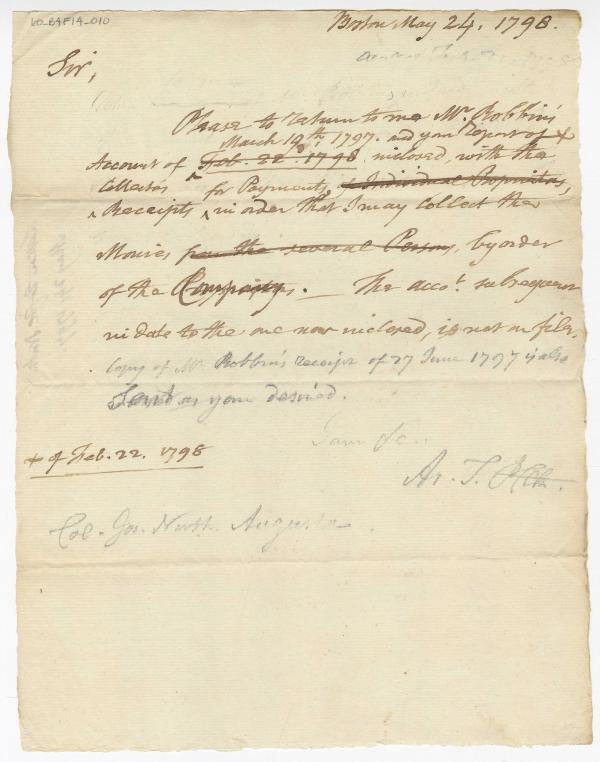 60_B4F14_010
Boston May 24. 1798.
Sir,
Please to return to me Mr. Robbin's
March 19th, 1797. and your Report of +
Account of Feb. 22d 1798 inclosed, with the
for Payments,
Receipts in order that I may collect the
Monies per the several Persons, by order
of the Company. — The accot. subsequent
in date to the one now inclosed, is not on file.
Copy of Mr. Robbin's receipt of 27 June 1797 is also
Sent as you desired.
I am &c.
+ of Feb. 22. 1798
Ar. T.
Col. Gos. North. Augusta